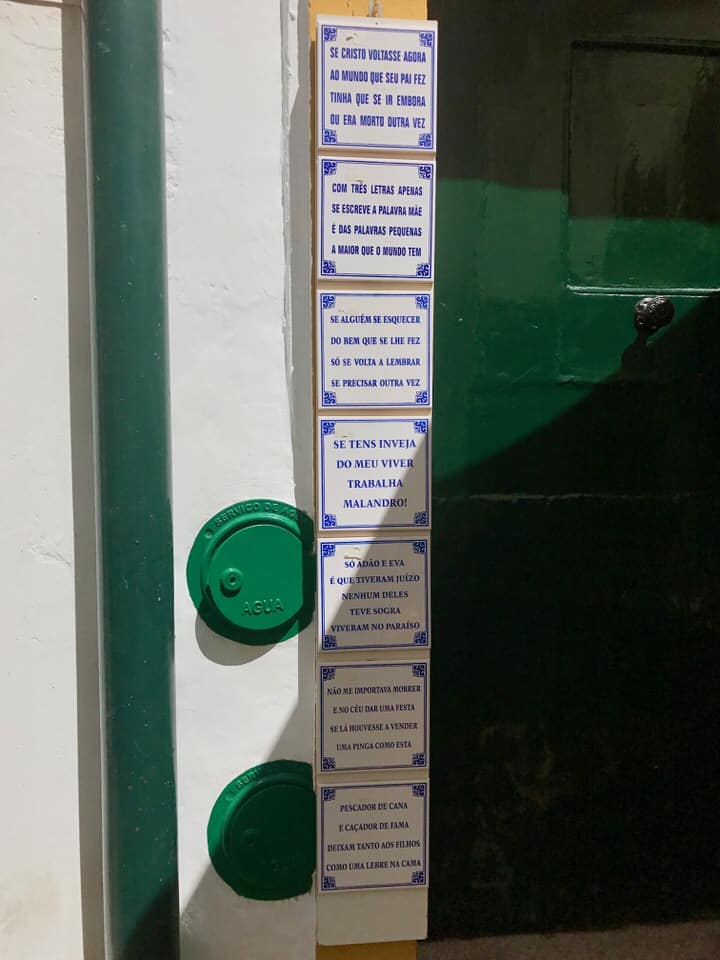 SE CRISTO VOLTASSE AGORA
AO MUNDO QUE SEU PAI FEZ
TINHA QUE SE IR EMBORA
OU ERA MORTO OUTRA VEZ
COM TRÊS LETRAS APENAS
SE ESCREVE A PALAVRA MÃE
É DAS PALAVRAS PEQUENAS
A MAIOR QUE O MUNDO TEM
SE ALGUÉM SE ESQUECER
DO BEM QUE SE LHE FEZ
SÓ SE VOLTA A LEMBRAR
SE PRECISAR OUTRA VEZ
SE TENS INVEJA
DO MEU VIVER
TRABALHA
MALANDRO!
SÓ ADÃO E EVA
É QUE TIVERAM JUÍZO
NENHUM DELES
TEVE SOGRA
VIVERAM NO PARAÍSO
NÃO ME IMPORTAVA MORRER
E NO CÉU DAR UMA FESTA
SE LÁ HOUVESSE A VENDER
UMA PINGA COMO ESTA
PESCADOR DE CANA
E CAÇADOR DE FAMA
DEIXAM TANTO AOS FILHOS
COMO UMA LEBRE NA CAMA
SERVIÇO DE
AGUA